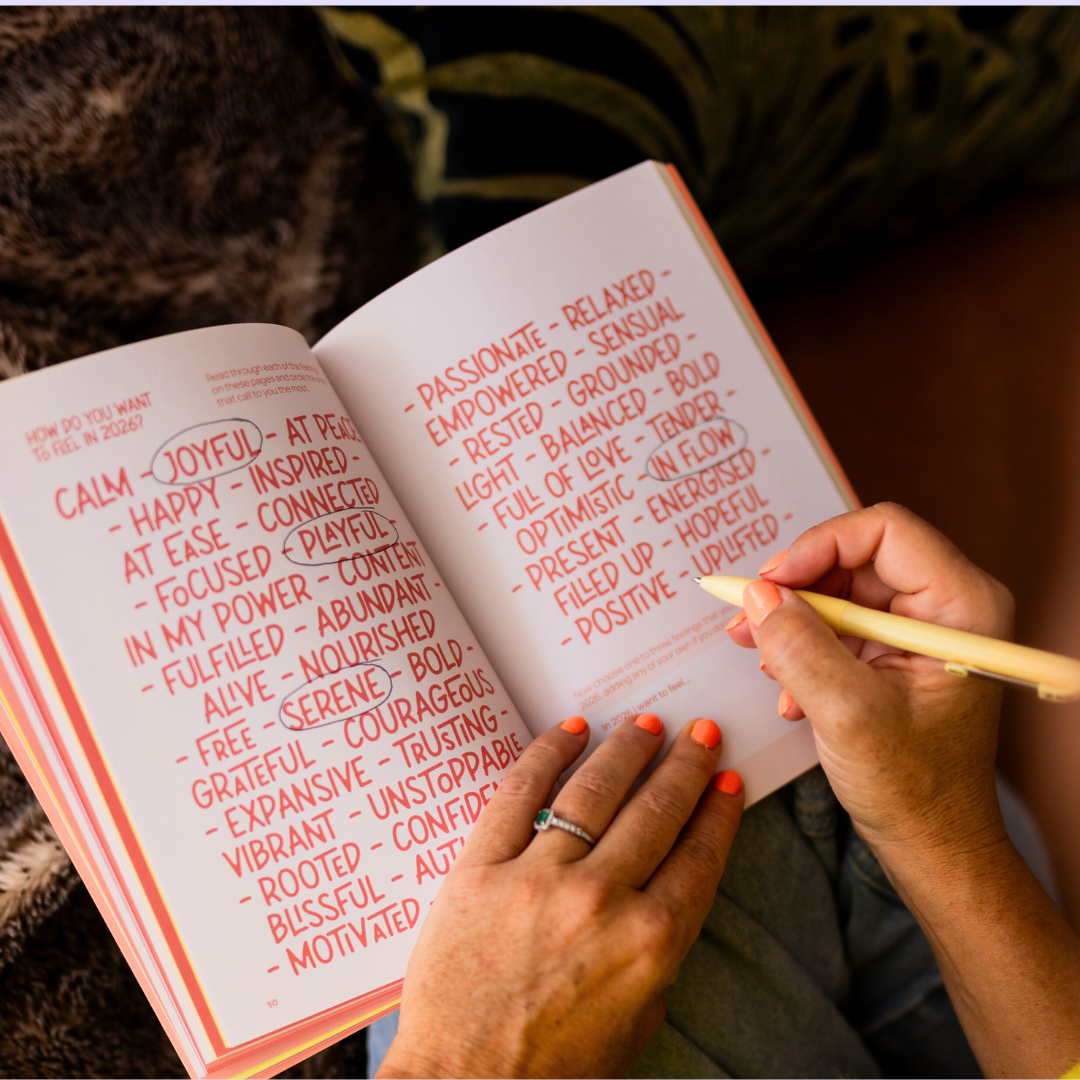 HOW DO YOU WANT
TO FEEL IN 2026?
Read through each of the feelings
on these pages and circle the ones
that call to you the most.
CALM - JOYFUL - AT PEACE
- HAPPY - INSPIRED -
AT EASE - CONNECTED
- FOCUSED - PLAYFUL -
IN MY POWER - CONTENT
- FULFILLED - ABUNDANT -
ALIVE - NOURISHED
- FREE - SERENE - BOLD -
GRATEFUL - COURAGEOUS
- EXPANSIVE - TRUSTING -
VIBRANT - UNSTOPPABLE
- ROOTED - CONFIDEN
BLISSFUL - AUTH
- MOTIVATED -
50
- PASSIONATE - RELAXED -
EMPOWERED - SENSUAL
- RESTED - GROUNDED -
LIGHT - BALANCED - BOLD
- FULL OF LOVE - TENDER -
OPTIMISTIC - IN FLOW
- PRESENT - ENERGISED -
FILLED UP - HOPEFUL
- POSITIVE - UPLIFTED -
Now choose one to three feelings that you
2026, adding any of your own if you
In 2026 I want to feel...